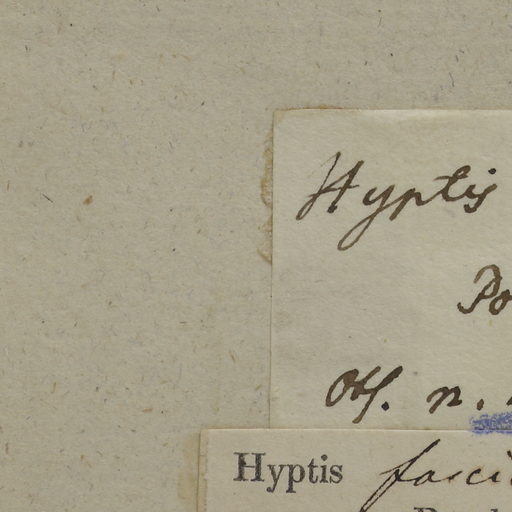 Hyptis
Po
Obs. n.
Hyptis fasci